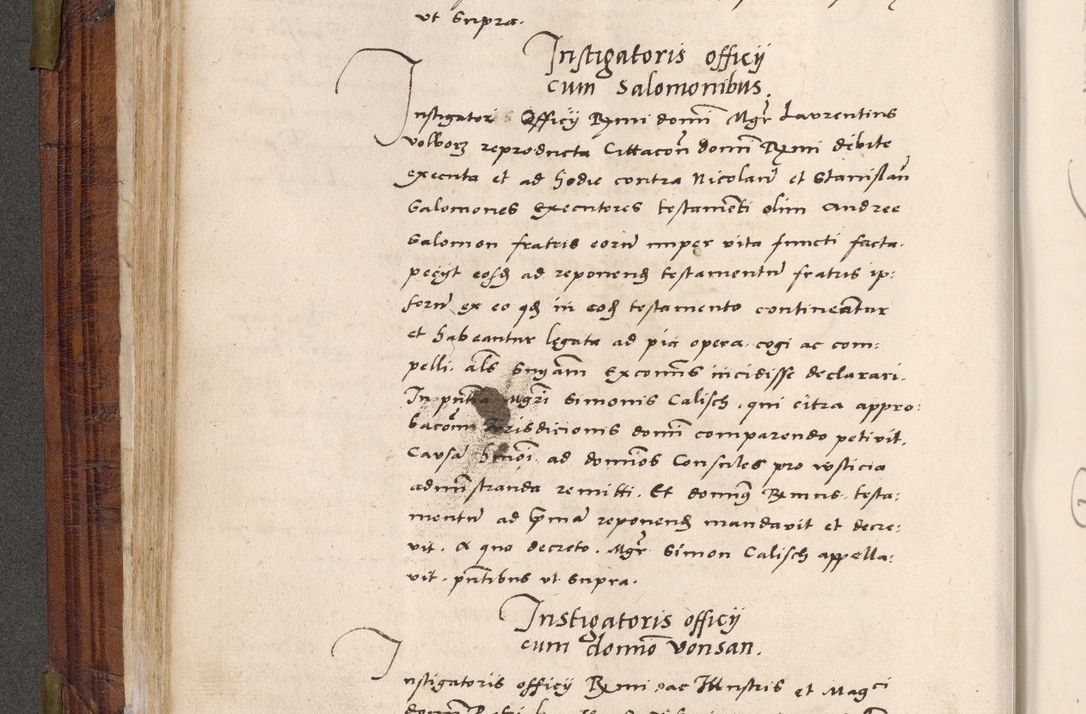 vt supra.
Instigatoris officij
cum Salomonibus.
Instigator Officij Rx̄mi domī Mgr̄ Laurentius
volborz reproducta Cittacōn domī Rx̄mi debite
executa et ad hodie contra Nicolaū et Stanislaū
Salomones Executores testamēti olim Andree
Salomon fratris eorū nuper vita functi facta.
pecijt eosdē ad reponendū testamentū fratris ip:
sorū ex eo qd̄ in eodē testamento contineantur
et habeantur legata ad pia opera. cogi ac com:
pelli. als̄ sn̄iam excom̄is incidisse declarari.
In pn̄tia Mgrī Simonis Calisch. qui citra appro:
bacōem iurisdicionis domī comparendo petivit.
Causā hm̄oi. ad domīos Consules pro iusticia
admīstranda remitti. Et domīus Rx̄mus. testa:
mentū ad p̄māū reponendū mandavit et decre:
vit. A quo decreto. Mgr̄ Simon Calisch appella:
vit. pn̄tibus vt supra.
Instigatoris officij
cum domīo vonsan.
Instigatoris officij Rx̄mi ac Illustris et Magci